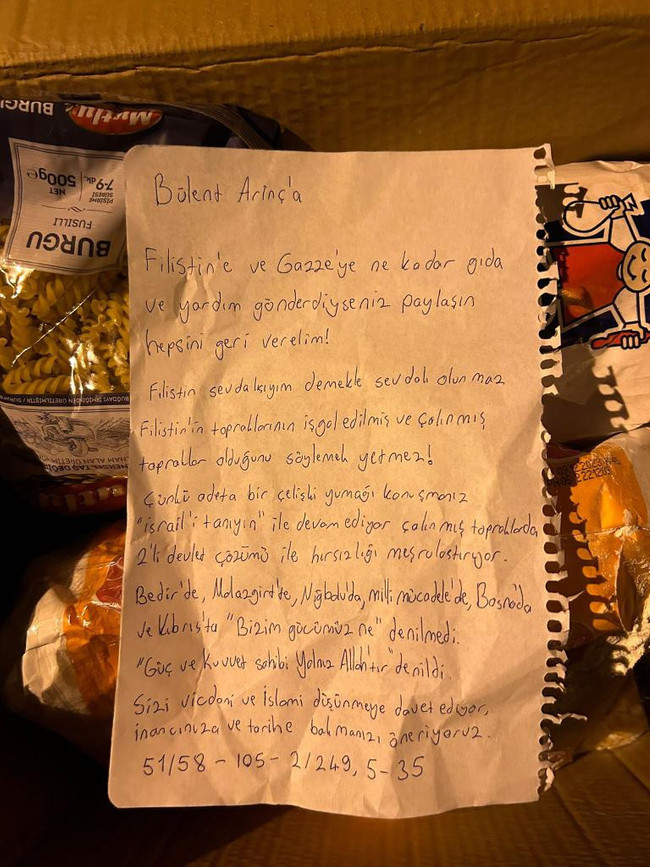 Bülent Arınç'a
Filistin'e ve Gazze'ye ne kadar gıda
ve yardım gönderdiyseniz paylaşın
hepsini geri verelim!
Filistin sevdalısıyım demekle sevdalı olunmaz
Filistin'in topraklarının işgal edilmiş ve çalınmış
topraklar olduğunu söylemek yetmez!
Çünkü adeta bir çelişki yumağı konuşmanız
"israil'i tanıyın" ile devam ediyor çalınmış topraklarda
2'li devlet çözümü ile hırsızlığı meşrulaştırıyor.
Bedir'de, Malazgirt'te, Niğbolu'da, milli mücadele'de, Bosna'da
ve Kıbrıs'ta "Bizim gücümüz ne" denilmedi.
"Güç ve Kuvvet sahibi Yalnız Allah'tır" denildi.
Sizi vicdani ve İslami düşünmeye davet ediyor,
inancınıza ve tarihe bakmanızı öneriyoruz.
51/58 - 105 - 2/249, 5-35
Mutlu
BURGU
FUSILLI
PİŞİRME
SÜRESİ
7-9 dk.
NET
500g e